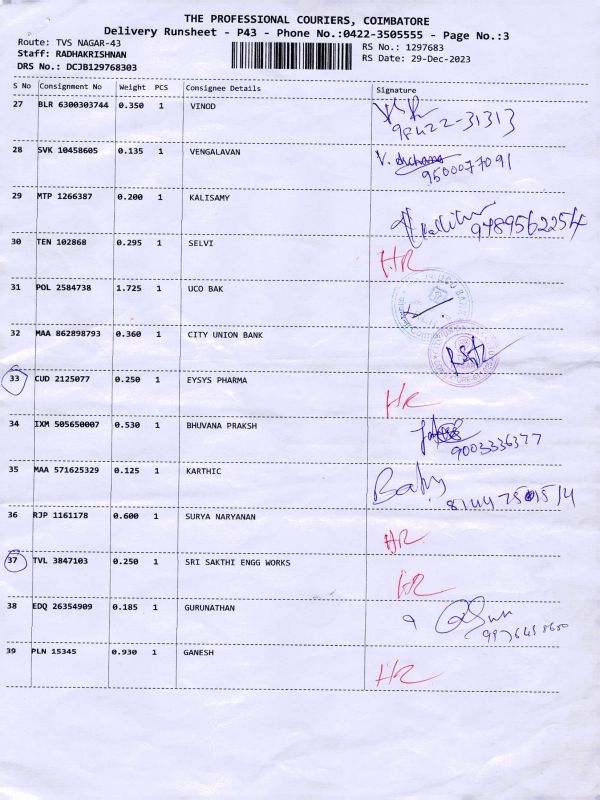 THE PROFESSIONAL COURIERS, COIMBATORE
Delivery Runsheet - P43 - Phone No.:0422-3505555 - Page No.:3
Route: TVS NAGAR-43
RS No.: 1297683
Staff: RADHAKRISHNAN
RS Date: 29-Dec-2023
DRS No.: DCJB129768303
S No Consignment No Weight PCS Consignee Details Signature
27 BLR 6300303744 0.350 1 VINOD
98422-31313
28 SVK 10458605 0.135 1 VENGALAVAN V.
9500077091
29 MTP 1266387 0.200 1 KALISAMY
9789562254
30 TEN 102868 0.295 1 SELVI HR
31 POL 2584738 1.725 1 UCO BAK
UCO BANK
32 MAA 862898793 0.360 1 CITY UNION BANK
33 CUD 2125077 0.250 1 EYSYS PHARMA HR
34 IXM 505650007 0.530 1 BHUVANA PRAKSH
9003336377
35 MAA 571625329 0.125 1 KARTHIC Baby
36 RJP 1161178 0.600 1 SURYA NARYANAN HR
37 TVL 3847103 0.250 1 SRI SAKTHI ENGG WORKS HR
38 EDQ 26354909 0.185 1 GURUNATHAN
39 PLN 15345 0.930 1 GANESH HR